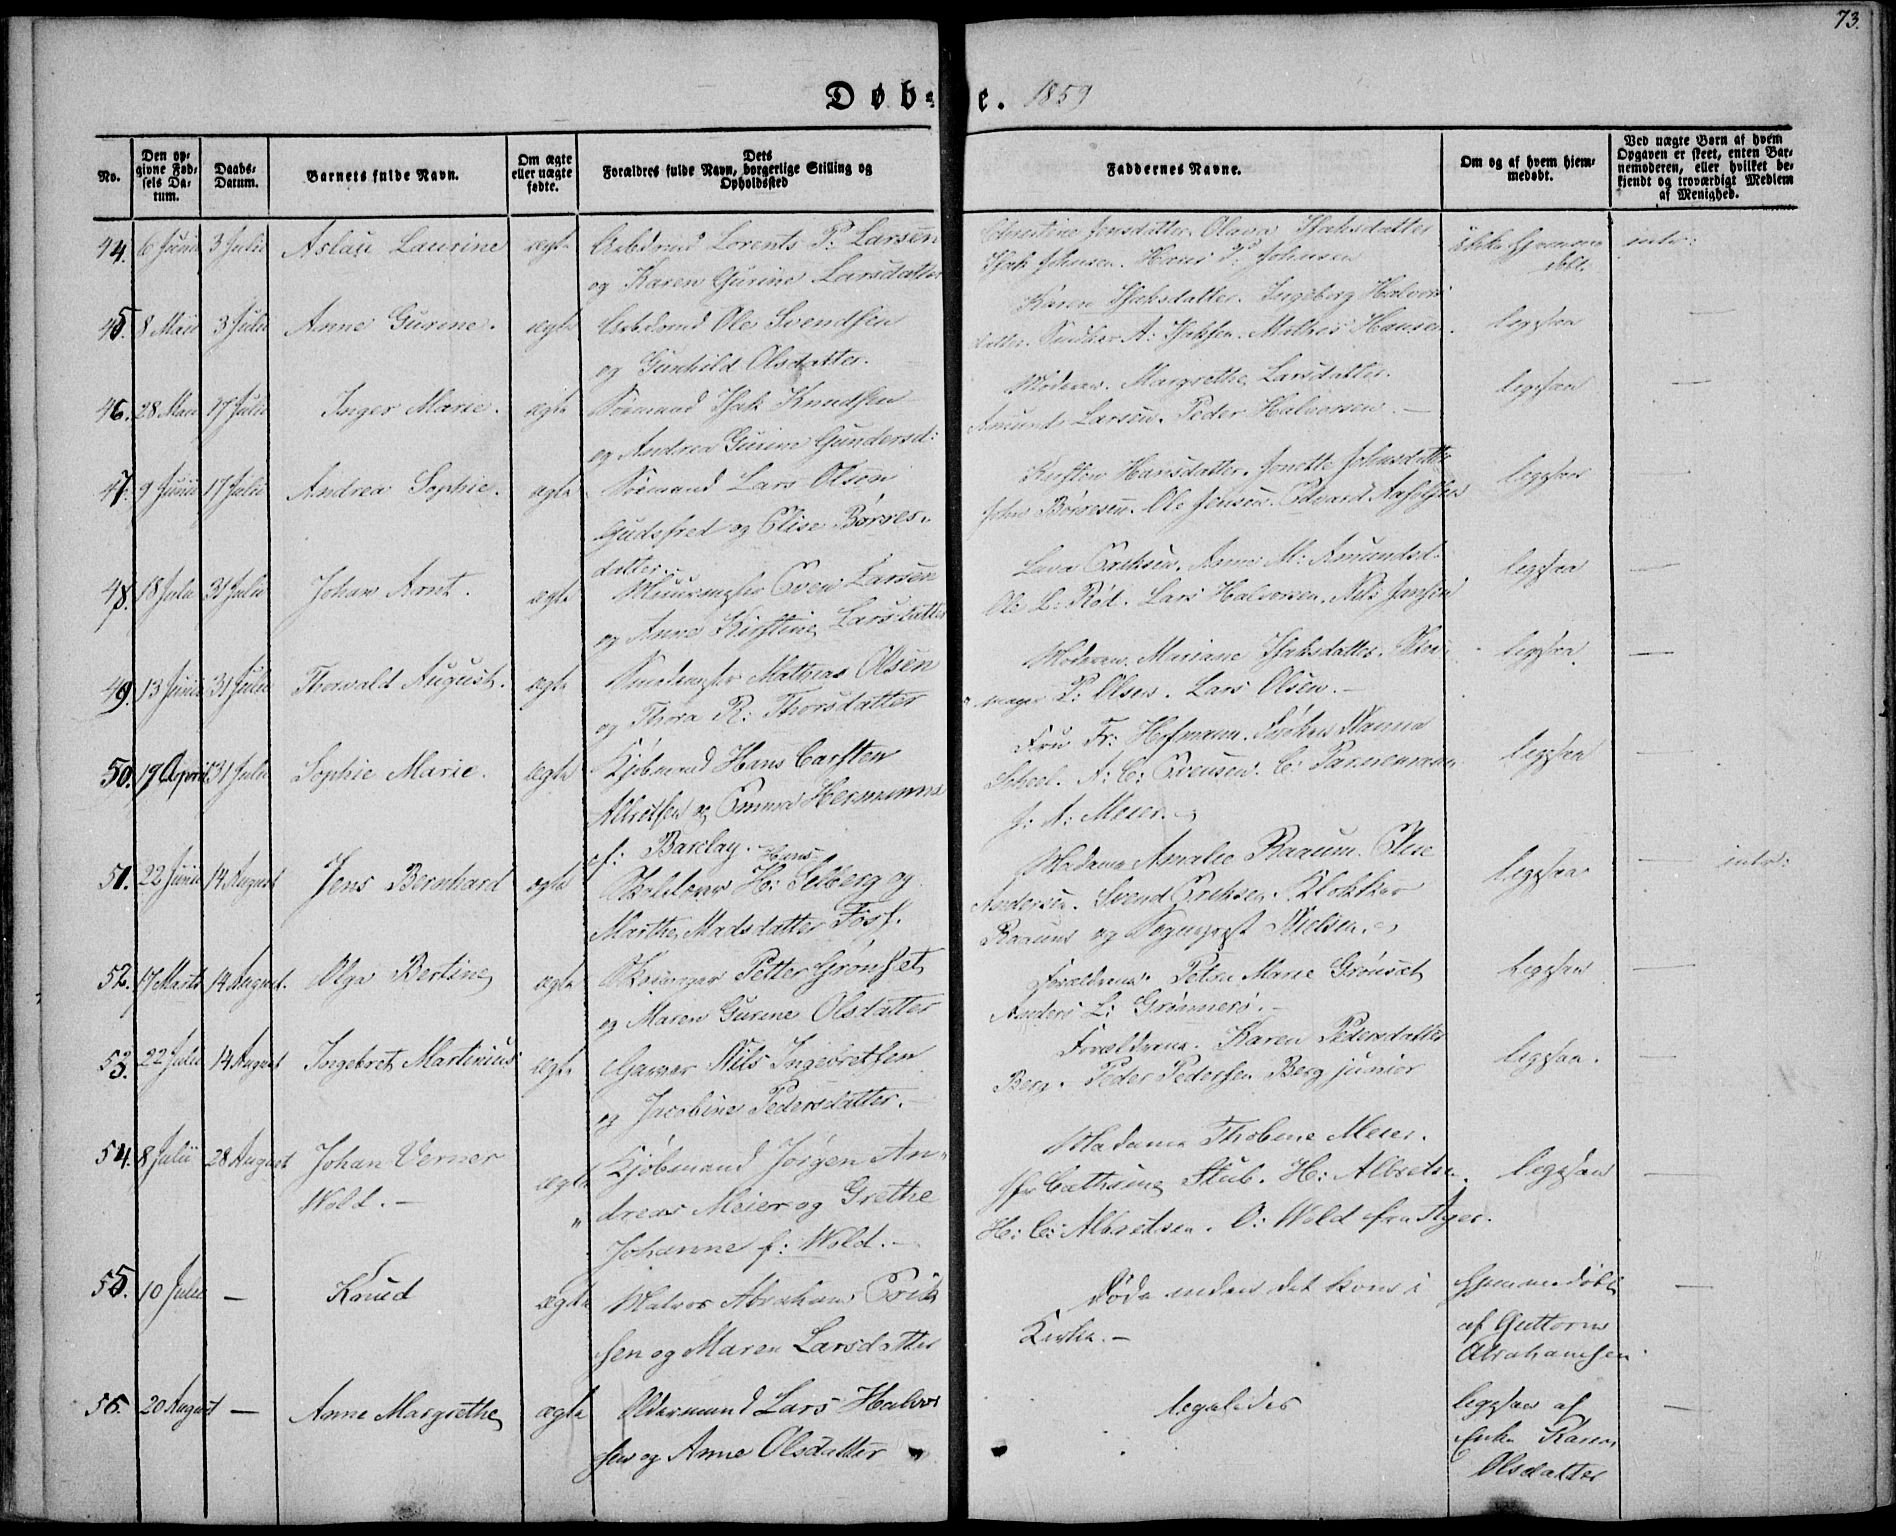 73.
Døbte. 1859
No.
Den opgivne Fødsels Datum.
Daabs-Datum.
Barnets fulde Navn.
Om ægte eller uægte fødte.
Dets Forældres fulde Navn, borgerlige Stilling og Opholdssted
Faddernes Navne.
Om og af hvem hjemmedøbt.
Ved uægte Børn af hvem Opgaven er skeet, enten Barnemoderen, eller hvilket bekjendt og troværdigt Medlem af Menighed.
44. 6 Junii 3 Julii Aslau Laurine ægte Arbdmd Lorents P: Larsen
og Karen Gurine Larsdatter
Christine Jensdatter. Olava Isaksdatter
Isak Johnsen. Hans P: Johnsen
ikke hjemme
døbt.
intv:
45. 8 Maii 3 Julii Anne Gurine. ægte Arbdmd Ole Svendsen
og Gunhild Olsdatter.
Karen Isaksdatter. Ingeborg Halvors
datter. A: Isaksen. Mathis Hansen.
ligesaa —
46. 28 Maii 17 Julii Inger Marie. ægte Sømand Isak Knudsen
og Andrea Gurine Gundersd:
Moderen. Margrethe Larsdatter.
Amund Larsen. Peder Halvorsen. —
ligesaa —
47. 9 Junii 17 Julii Andrea Sophie. ægte Sømand Lars Olsen
Gudsfred og Elise Børres-
datter.
Kirsten Hansdatter. Jonette Johnsdatter
John Børresen. Ole Jensen. Edvard
ligesaa —
48. 18 Julii 31 Julii Johan Arnt. ægte Muurmester Even Larsen
og Anne Kirstine Larsdatter
Lava Eriksen. Anne M: Amundsd.
Ole L: Røt. Lars Halvorsen. Nils Jensen
ligesaa —
49. 13 Junii 31 Julii Thorvald August. ægte Mathias Olsen
og Thora R: Thorsdatter
Moderen. Mariane Isaksdatter. Skoe-
mager P: Olsen. Lars Olsen. —
ligesaa —
50. 17 April 31 Julii Sophie Marie. ægte Kjøbmand Hans Carsten
Albretsen og Emma Hermanna
f: Barclay. —
Fru Fr: Hofmann. Frøken Nanna
Scheel. A: C: Evensen. C: Pannemann
J: A: Meier.
ligesaa —
51. 22 Junii 14 August Jens Bernhard ægte Hans
H: Selberg og
Marthe Madsdatter Foss.
Madame Amalie Raaum. Elise
Andersen. Svend Eriksen. Klokker
Raaum og Sogneprest Nielsen.
ligesaa — intv:
52. 17 Marts 14 August. Olga Bertine ægte Petter Grønset
og Maren Gurine Olsdatter
Forældrene. Petra Marie Grønset
Anders L: Grønnerø. —
ligesaa —
53. 22 Julii 14 August Ingebret Martinius ægte Garver Nils Ingebretsen
og Jacobine Pedersdatter. —
Forældrene. Karen Pedersdatter
Berg. Peder Pedersen Berg junior
ligesaa. —
54. 8 Julii 28 August Johan Verner
Wold. —
ægte Kjøbmand Jørgen An-
dreas Meier og Grethe
Johanne f: Wold. —
Madame Thobine Meier.
Jfr Cathrine Stub. H: Albretsen.
H: C: Albretsen. O: Wold fra Ager.
ligesaa —
55. 10 Julii — Knud ægte Matros Abraham Erik
sen og Maren Larsdatter
Døde inden det kom i
Kirke. —
Hjemmedøbt
af Guttorm
Abrahamsen. —
56. 20 August — Anne Margrethe ægte Oldermand Lars Halvor
sen og Anne Olsdatter
ligeledes
ligesaa af
Enke Karen
Olsdatter —